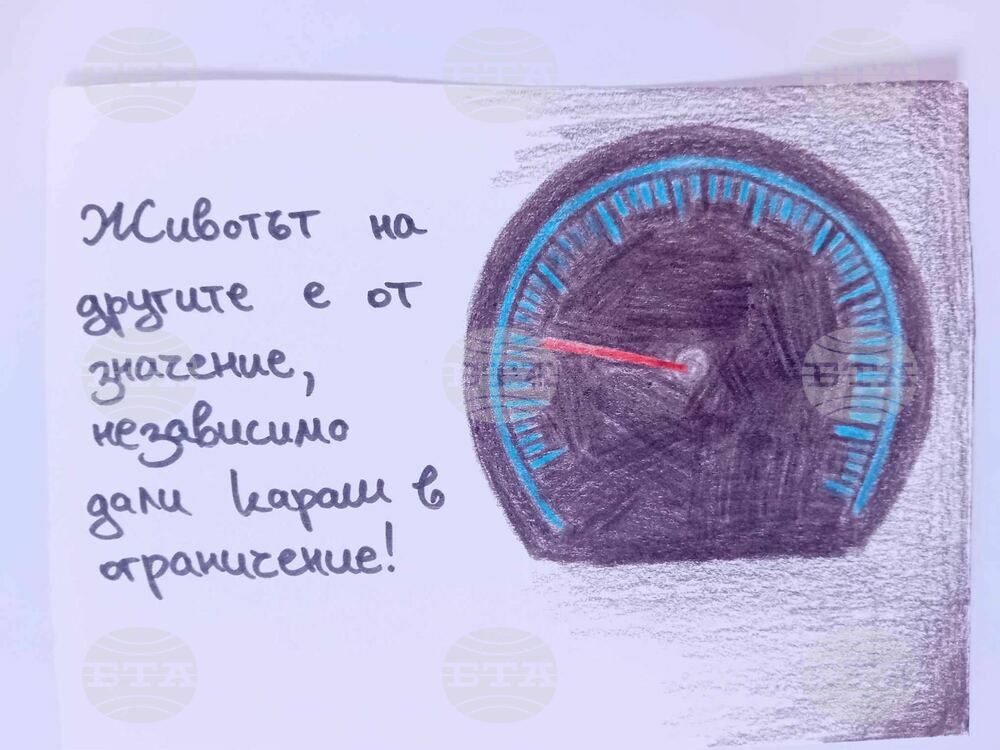 Животът на
другите е от
значение,
независимо
дали караш в
ограничение!
БТА
БТА
БТА
БТА
БТА
БТА
БТА
БТА